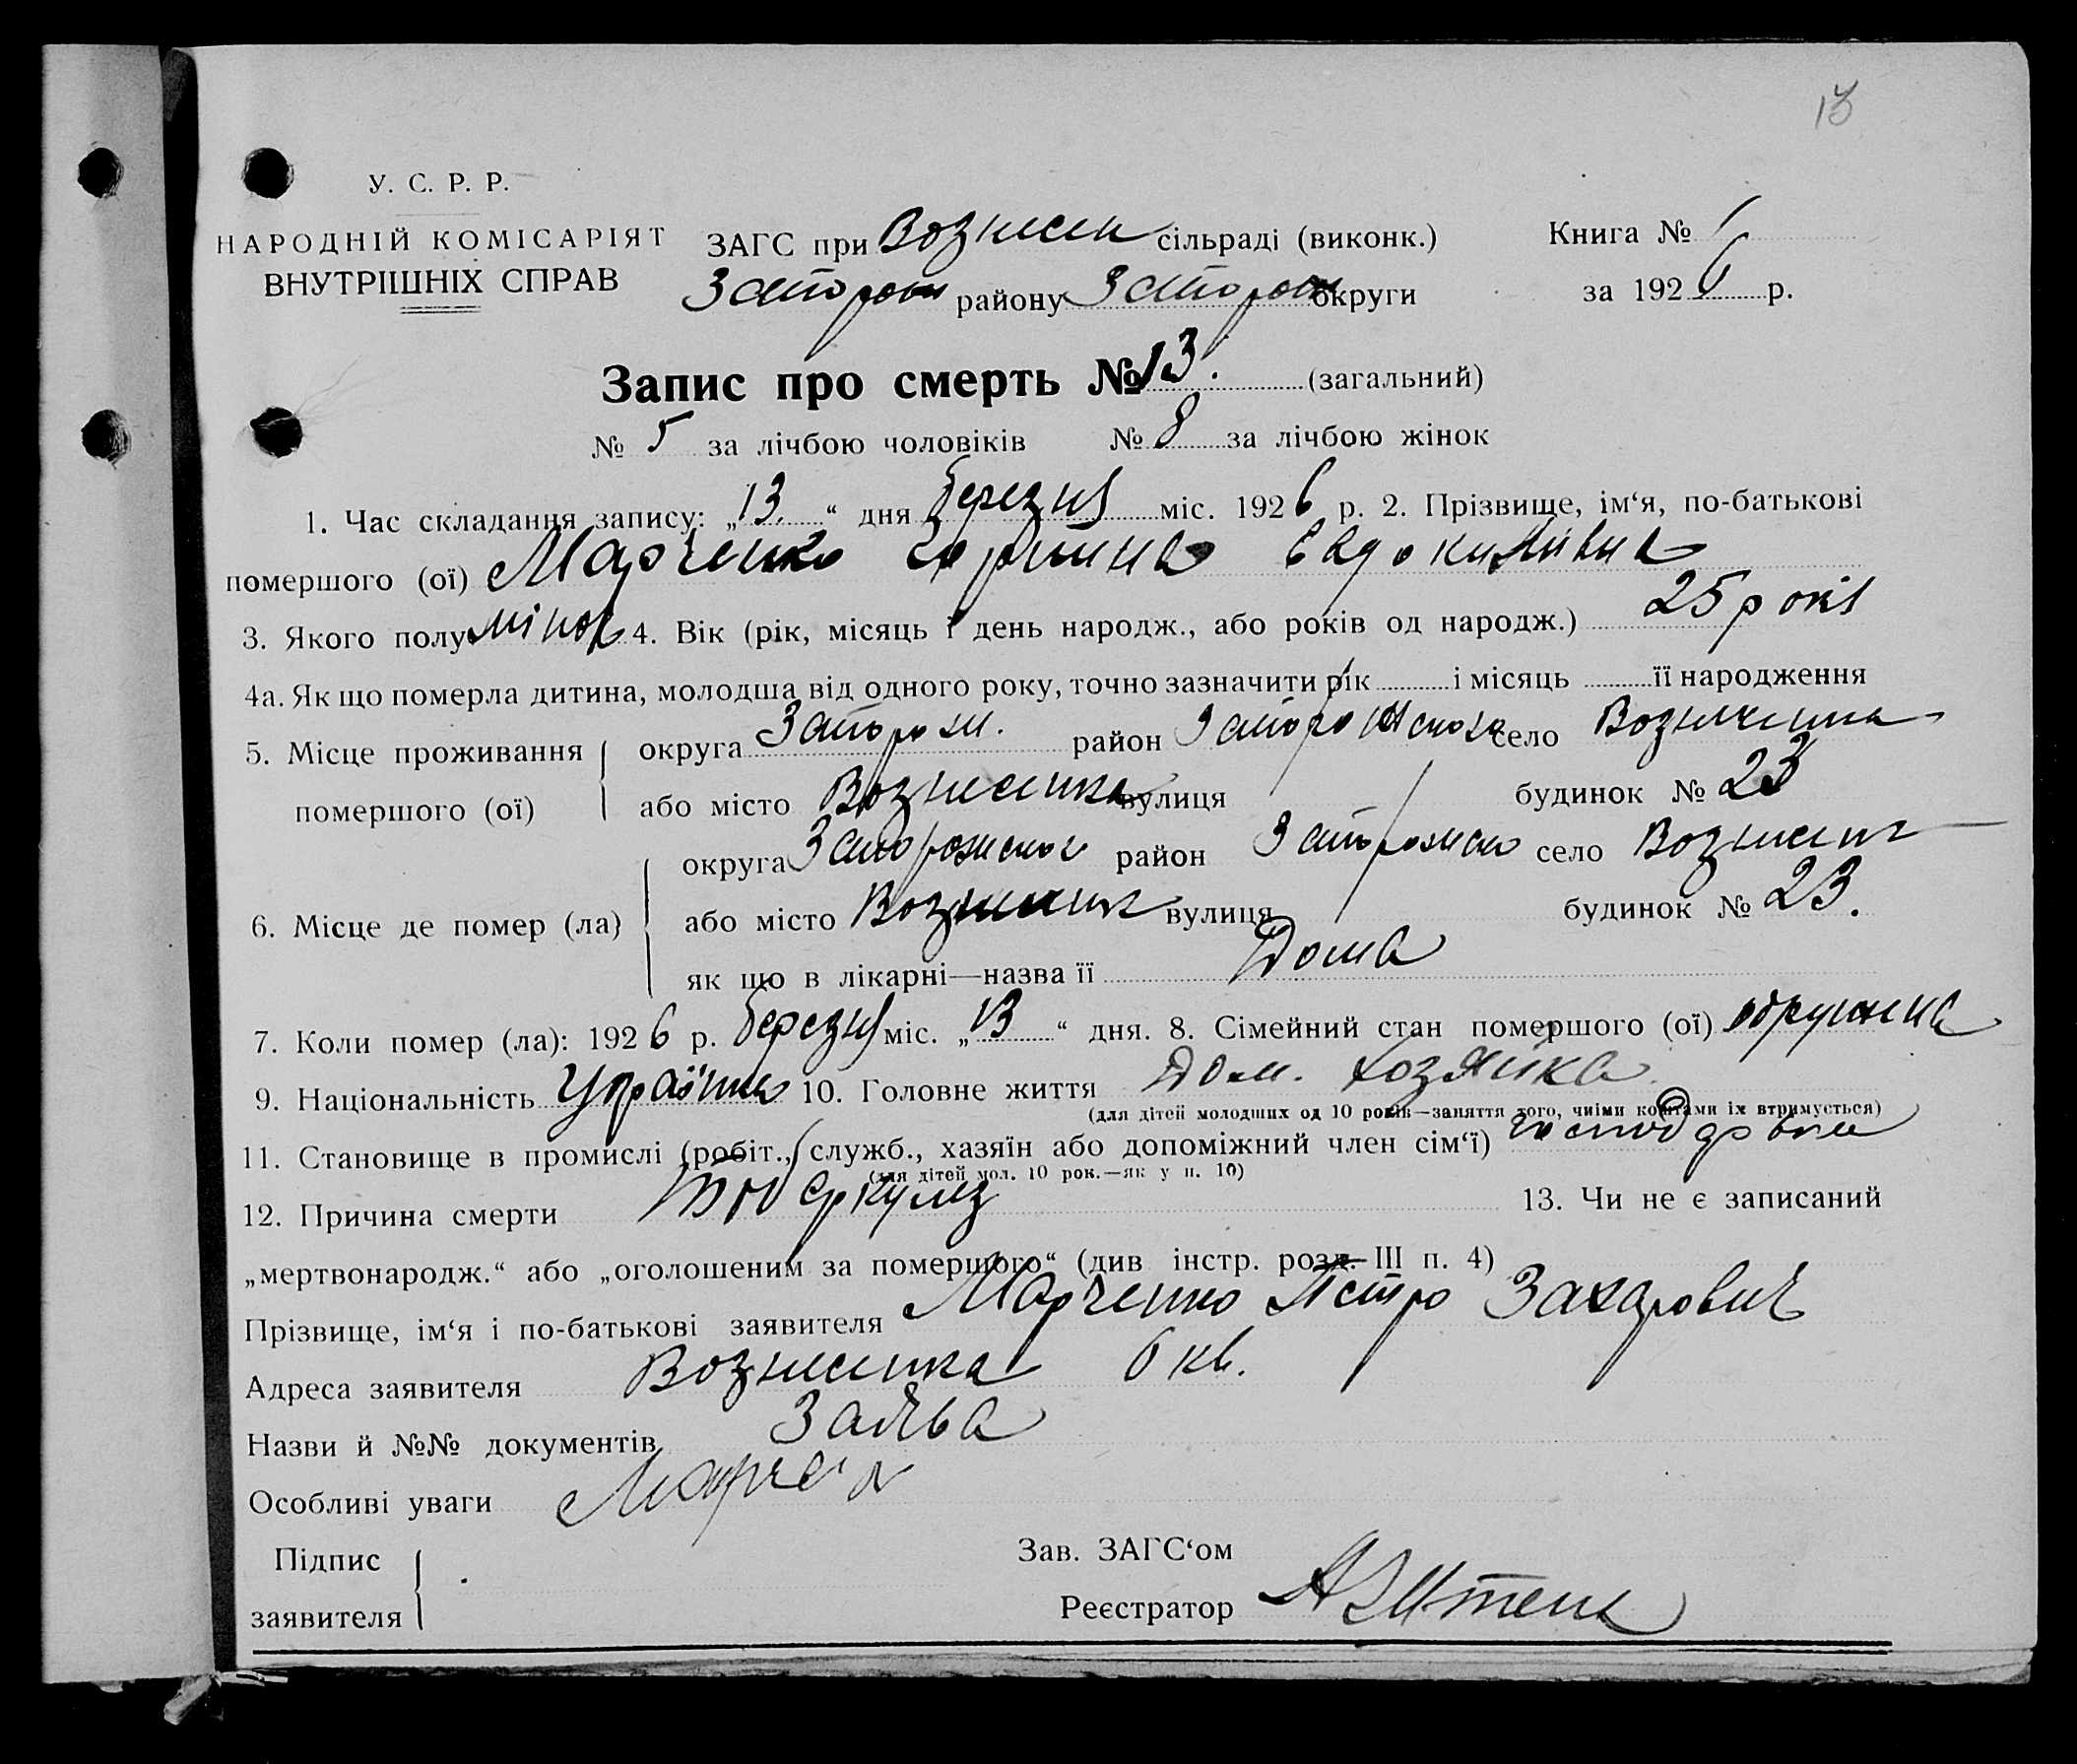 13
У. С. Р. Р.
НАРОДНІЙ КОМІСАРІЯТ
ВНУТРІШНІХ СПРАВ
ЗАГС при Вознесен сільраді (виконк.)
Запорож району Запорож округи
Книга № 1
за 1926 р.
Запис про смерть № 13. (загальний)
№ 5 за лічбою чоловіків № 8 за лічбою жінок
1. Час складання запису: „13.“ дня березня міс. 1926 р. 2. Прізвище, ім‘я, по-батькові
помершого (ої) Марченко Евдокимівна
3. Якого полу жіноч 4. Вік (рік, місяць і день народж., або років од народж.) 25 років
4а. Як що померла дитина, молодша від одного року, точно зазначити рік і місяць її народження
5. Місце проживання помершого (ої)
округа Запорож. район Запорожского село Вознесенка
або місто Вознесенка вулиця будинок № 23
6. Місце де помер (ла)
округа Запорожског район Запорожск село Вознесенк
або місто Вознесенк вулиця будинок № 23.
як що в лікарні—назва її Дома
7. Коли помер (ла): 1926 р. березня міс. „13“ дня. 8. Сімейний стан помершого (ої) одружена
9. Національність Українка 10. Головне життя Дом. хозяйка
(для дітей молодших од 10 років—заняття того, чиїми коштами їх втримується)
11. Становище в промислі (робіт., служб., хазяїн або допоміжний член сім‘ї)
(для дітей мол. 10 рок.—як у п. 10)
12. Причина смерти Тюберкулез 13. Чи не є записаний
„мертвонародж.“ або „оголошеним за помершого“ (див інстр. розд. III п. 4) —
Прізвище, ім‘я і по-батькові заявителя Марченко Петро Захарович
Адреса заявителя Вознесенка 6 кв.
Назви й №№ документів Заява
Особливі уваги Марчен
Підпис заявителя
Зав. ЗАГС‘ом
Реєстратор